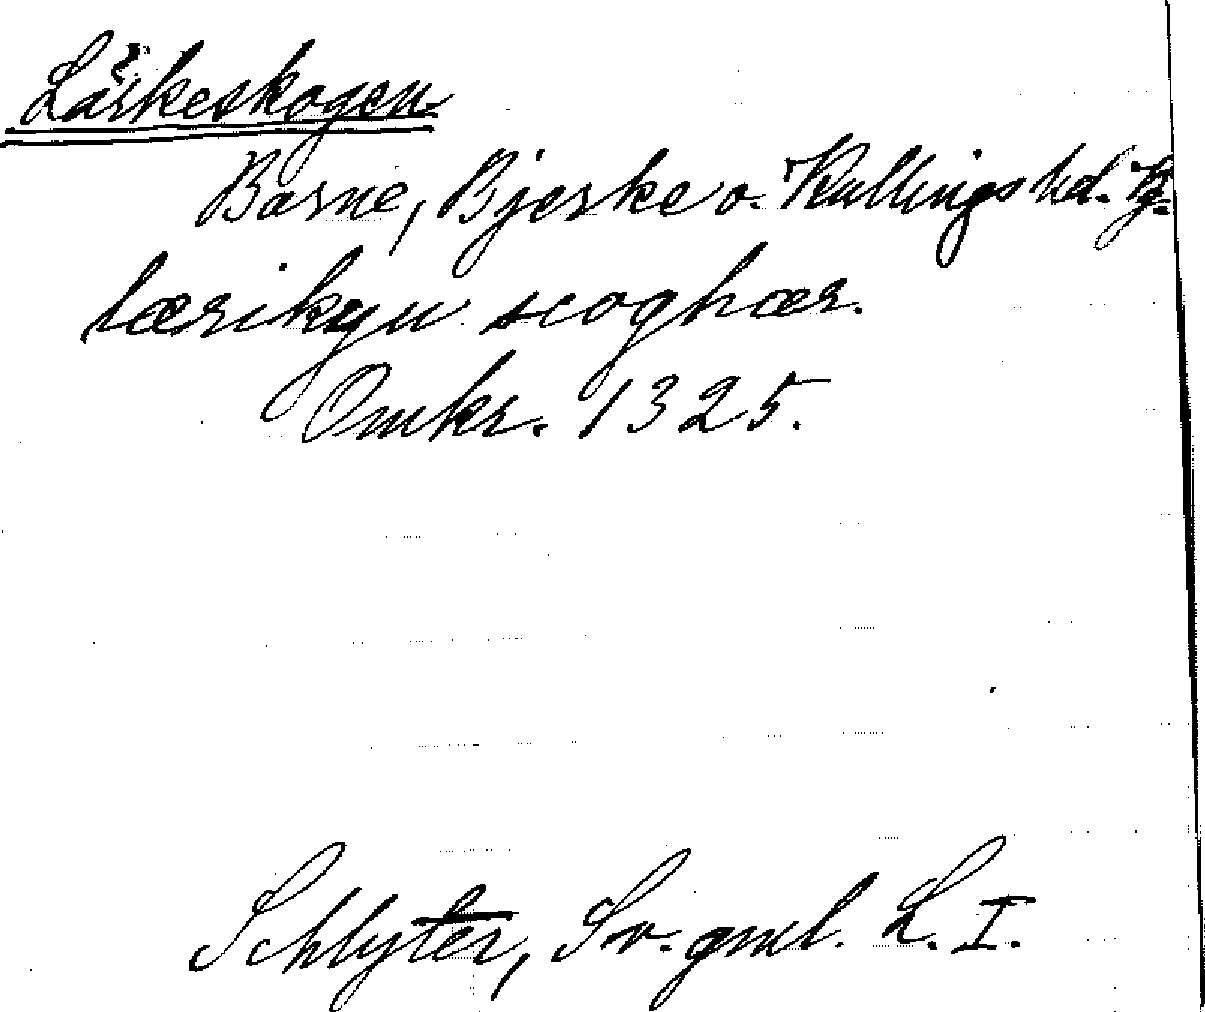 Lärkeskogen
Barne, Bjerke o. Kullings hd. Vg.
lærikyu scoghær.
Omkr. 1325.
Schlyter, Sv. gml. L. I.